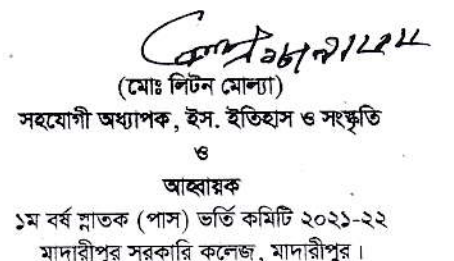 (মোঃ লিটন মোল্যা)
সহযোগী অধ্যাপক, ইস. ইতিহাস ও সংস্কৃতি
ও
আহবায়ক
১ম বর্ষ স্নাতক (পাস) ভর্তি কমিটি ২০২১-২২
মাদারীপুর সরকারি কলেজ, মাদারীপুর।